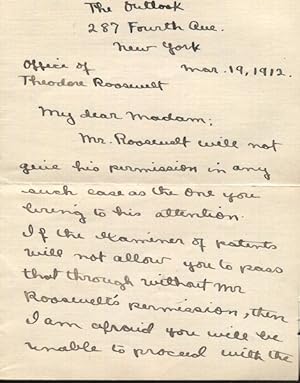 The Outlook
287 Fourth Ave.
New York
Office of Mar. 19, 1912.
Theodore Roosevelt
My dear Madam:
Mr. Roosevelt will not
give his permission in any
such case as the one you
bring to his attention.
If the examiner of patents
will not allow you to pass
that through without Mr
Roosevelt's permission, then
I am afraid you will be
unable to proceed with the